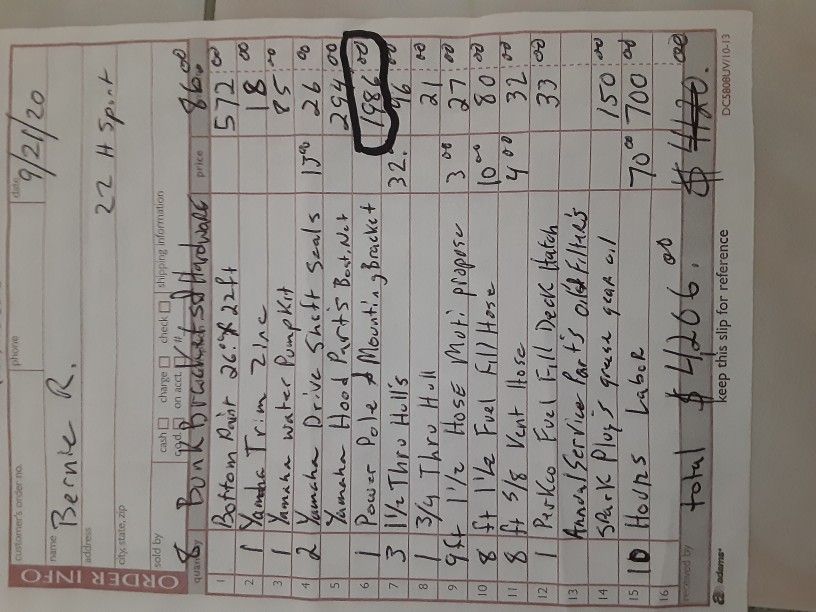 ORDER INFO
customer's order no. phone date 9/21/20
name Bernie R.
address 22 H Sport
city, state, zip
sold by cash charge check shipping information
c.o.d. on acct.
quantity price
8 Bunk Bracket SS Hardware 86.00
1 Bottom Paint 26.00 x 22 ft 572 00
2 1 Yamaha Trim Zinc 18 00
3 1 Yamaha Water Pump Kit 85 00
4 2 Yamaha Drive Shaft Seals 13 00 26 00
5 Yamaha Hood Part's Boat.Net 294 00
6 1 Power Pole & Mounting Bracket 1986 00
7 3 1 1/2 Thru Hull's 32. 96 00
8 1 3/4 Thru Hull 21 00
9 9 ft 1 1/2 Hose Muti propose 3 00 27 00
10 8 ft 1 1/2 Fuel Fill Hose 10 00 80 00
11 8 ft 5/8 Vent Hose 4 00 32 00
12 1 Perko Fuel Fill Deck Hatch 33 00
13 Annual Service Part's oil & Filter's
14 Spark Plug's grease gear oil 150 00
15 10 Hours Labor 70 00 700 00
16
received by total $ 4206.00 $ 4120.00
adams keep this slip for reference DC5808UV/10-13